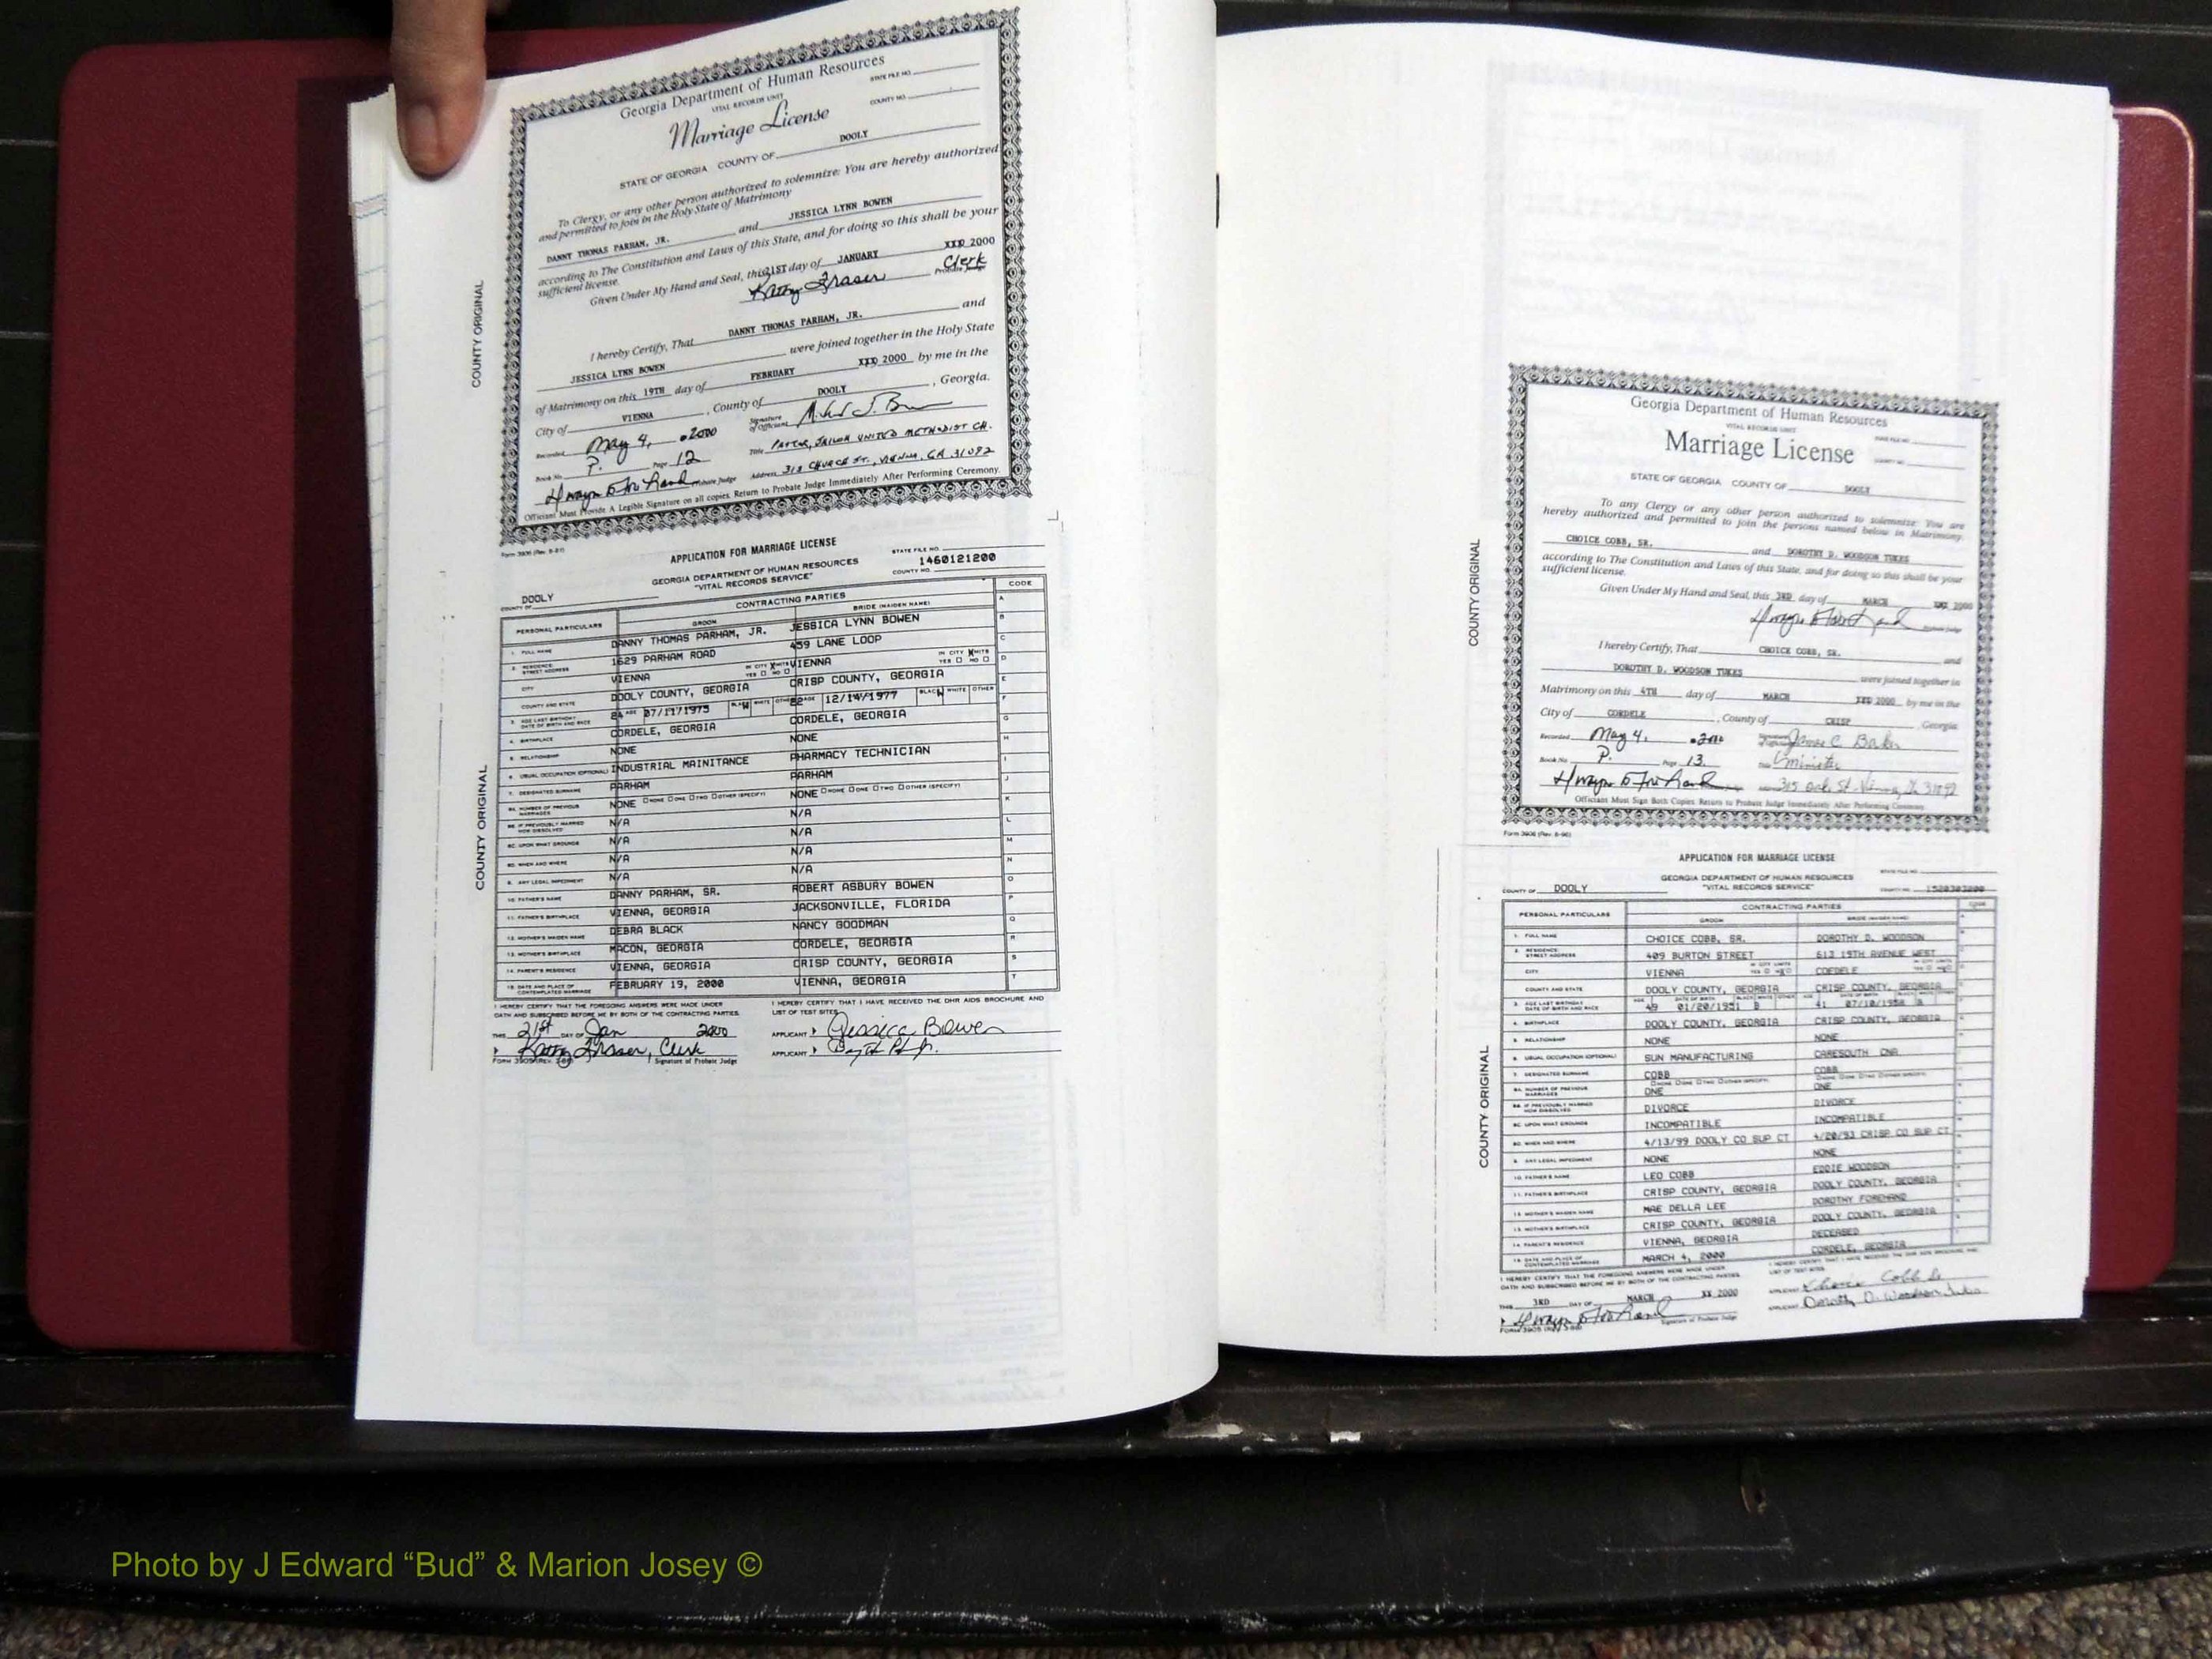 Georgia Department of Human Resources
VITAL RECORDS UNIT
STATE FILE NO.
Marriage License
COUNTY NO.
STATE OF GEORGIA COUNTY OF DOOLY
To Clergy, or any other person authorized to solemnize: You are hereby authorized
and permitted to join in the Holy State of Matrimony
DANNY THOMAS PARHAM, JR. and JESSICA LYNN BOWEN
according to The Constitution and Laws of this State, and for doing so this shall be your
sufficient license.
Given Under My Hand and Seal, this 21ST day of JANUARY XXX 2000
Kathy Fraser Clerk
Probate Judge
I hereby Certify, That DANNY THOMAS PARHAM, JR. and
JESSICA LYNN BOWEN were joined together in the Holy State
of Matrimony on this 19TH day of FEBRUARY XXX 2000 by me in the
City of VIENNA, County of DOOLY, Georgia.
Recorded May 4, 2000 Signature of Officiant
Book No. P. Page 12 Title UNITED METHODIST CH.
Probate Judge Address 318 CHURCH ST., VIENNA, GA 31092
Officiant Must Provide A Legible Signature on all copies. Return to Probate Judge Immediately After Performing Ceremony.
Form 3906 (Rev. 8-91)
COUNTY ORIGINAL
APPLICATION FOR MARRIAGE LICENSE
GEORGIA DEPARTMENT OF HUMAN RESOURCES
"VITAL RECORDS SERVICE"
STATE FILE NO.
COUNTY NO. 1460121200
COUNTY OF DOOLY
CONTRACTING PARTIES CODE
PERSONAL PARTICULARS GROOM BRIDE (MAIDEN NAME)
1. FULL NAME DANNY THOMAS PARHAM, JR. JESSICA LYNN BOWEN
2. RESIDENCE: STREET ADDRESS 1629 PARHAM ROAD 459 LANE LOOP
CITY VIENNA VIENNA
COUNTY AND STATE DOOLY COUNTY, GEORGIA CRISP COUNTY, GEORGIA
3. AGE LAST BIRTHDAY DATE OF BIRTH AND RACE 24 07/17/1975 W 22 12/14/1977 W
4. BIRTHPLACE CORDELE, GEORGIA CORDELE, GEORGIA
5. RELATIONSHIP NONE NONE
6. USUAL OCCUPATION (OPTIONAL) INDUSTRIAL MAINITANCE PHARMACY TECHNICIAN
7. DESIGNATED SURNAME PARHAM PARHAM
8A. NUMBER OF PREVIOUS MARRIAGES NONE NONE
8B. IF PREVIOUSLY MARRIED HOW DISSOLVED N/A N/A
8C. UPON WHAT GROUNDS N/A N/A
8D. WHEN AND WHERE N/A N/A
9. ANY LEGAL IMPEDIMENT N/A N/A
10. FATHER'S NAME DANNY PARHAM, SR. ROBERT ASBURY BOWEN
11. FATHER'S BIRTHPLACE VIENNA, GEORGIA JACKSONVILLE, FLORIDA
12. MOTHER'S MAIDEN NAME DEBRA BLACK NANCY GOODMAN
13. MOTHER'S BIRTHPLACE MACON, GEORGIA CORDELE, GEORGIA
14. PARENT'S RESIDENCE VIENNA, GEORGIA CRISP COUNTY, GEORGIA
15. DATE AND PLACE OF CONTEMPLATED MARRIAGE FEBRUARY 19, 2000 VIENNA, GEORGIA
I HEREBY CERTIFY THAT THE FOREGOING ANSWERS WERE MADE UNDER
OATH AND SUBSCRIBED BEFORE ME BY BOTH OF THE CONTRACTING PARTIES.
I HEREBY CERTIFY THAT I HAVE RECEIVED THE DHR AIDS BROCHURE AND
LIST OF TEST SITES
THIS 21st DAY OF Jan 2000
Kathy Fraser, Clerk
Signature of Probate Judge
APPLICANT Jessica Bowen
APPLICANT
COUNTY ORIGINAL
Georgia Department of Human Resources
VITAL RECORDS UNIT
Marriage License
STATE OF GEORGIA COUNTY OF DOOLY
To any Clergy or any other person authorized to solemnize: You are
hereby authorized and permitted to join the persons named below in Matrimony.
CHOICE COBB, SR. and DOROTHY D. WOODSON TUKES
according to The Constitution and Laws of this State, and for doing so this shall be your
sufficient license.
Given Under My Hand and Seal, this 3RD day of MARCH XXX 2000
Probate Judge
I hereby Certify, That CHOICE COBB, SR. and
DOROTHY D. WOODSON TUKES were joined together in
Matrimony on this 4TH day of MARCH XXX 2000 by me in the
City of CORDELE, County of CRISP, Georgia.
Recorded May 4, 2000 James C. Baker
Book No. P. Page 13. Title Minister
315 Oak St. Vienna, Ga 31092
Officiant Must Sign Both Copies. Return to Probate Judge Immediately After Performing Ceremony.
Form 3906 (Rev. 8-96)
COUNTY ORIGINAL
APPLICATION FOR MARRIAGE LICENSE
GEORGIA DEPARTMENT OF HUMAN RESOURCES
"VITAL RECORDS SERVICE"
COUNTY OF DOOLY
CONTRACTING PARTIES
PERSONAL PARTICULARS GROOM BRIDE (MAIDEN NAME)
1. FULL NAME CHOICE COBB, SR. DOROTHY D. WOODSON
2. RESIDENCE: STREET ADDRESS 409 BURTON STREET 613 19TH AVENUE WEST
CITY VIENNA CORDELE
COUNTY AND STATE DOOLY COUNTY, GEORGIA CRISP COUNTY, GEORGIA
3. AGE LAST BIRTHDAY DATE OF BIRTH AND RACE 49 01/20/1951 B 41 07/10/1958 B
4. BIRTHPLACE DOOLY COUNTY, GEORGIA CRISP COUNTY, GEORGIA
5. RELATIONSHIP NONE NONE
6. USUAL OCCUPATION (OPTIONAL) SUN MANUFACTURING CARESOUTH CNA
7. DESIGNATED SURNAME COBB COBB
8A. NUMBER OF PREVIOUS MARRIAGES ONE ONE
8B. IF PREVIOUSLY MARRIED HOW DISSOLVED DIVORCE DIVORCE
8C. UPON WHAT GROUNDS INCOMPATIBLE INCOMPATIBLE
8D. WHEN AND WHERE 4/13/99 DOOLY CO SUP CT 4/20/93 CRISP CO SUP CT
9. ANY LEGAL IMPEDIMENT NONE NONE
10. FATHER'S NAME LEO COBB EDDIE WOODSON
11. FATHER'S BIRTHPLACE CRISP COUNTY, GEORGIA DOOLY COUNTY, GEORGIA
12. MOTHER'S MAIDEN NAME MAE DELLA LEE DOROTHY FOREHAND
13. MOTHER'S BIRTHPLACE CRISP COUNTY, GEORGIA DOOLY COUNTY, GEORGIA
14. PARENT'S RESIDENCE VIENNA, GEORGIA DECEASED
15. DATE AND PLACE OF CONTEMPLATED MARRIAGE MARCH 4, 2000 CORDELE, GEORGIA
I HEREBY CERTIFY THAT THE FOREGOING ANSWERS WERE MADE UNDER
OATH AND SUBSCRIBED BEFORE ME BY BOTH OF THE CONTRACTING PARTIES.
THIS 3RD DAY OF MARCH XX 2000
Signature of Probate Judge
APPLICANT Choice Cobb Sr
APPLICANT Dorothy D. Woodson Tukes
COUNTY ORIGINAL
Photo by J Edward “Bud” & Marion Josey ©